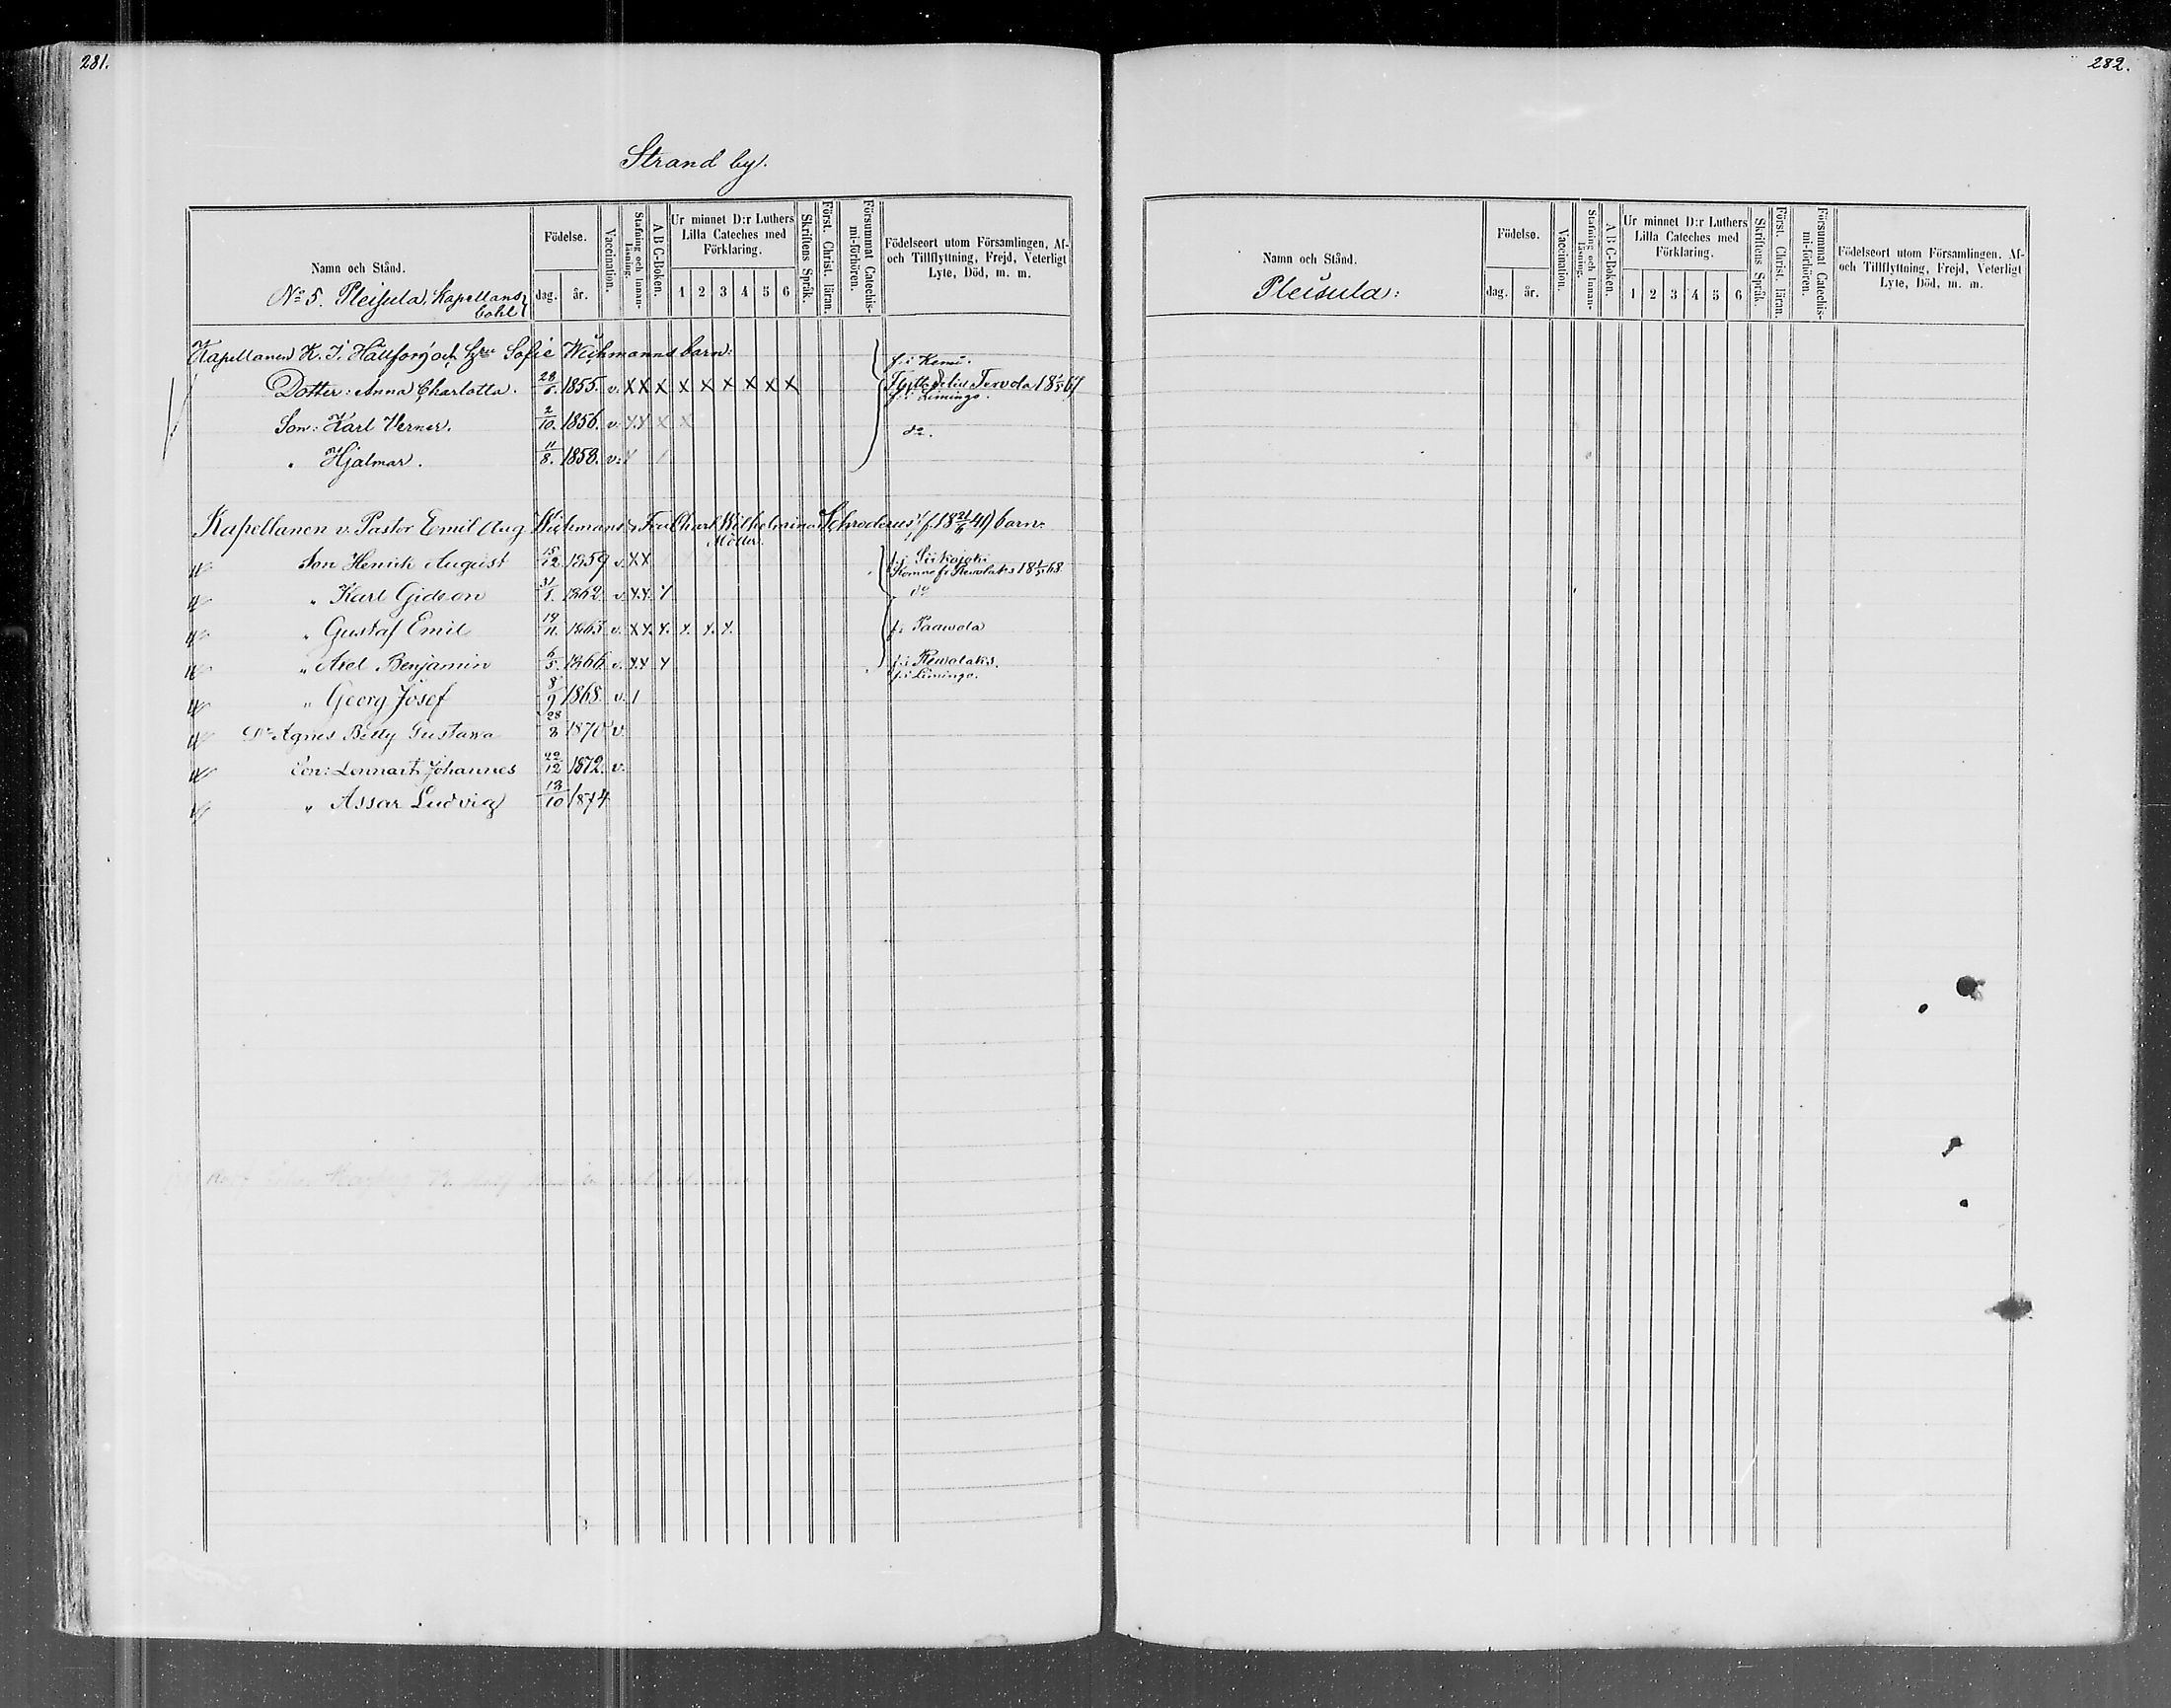 281.
Strand by.
Namn och Stånd.
Födelse.
dag. år.
Vaccination.
Stafning och Innan-läsning.
A B C-Boken.
Ur minnet D:r Luthers
Lilla Cateches med
Förklaring.
1 2 3 4 5 6
Skriftens Språk.
Först. Christ. läran.
Försummat Catechis-
mi-förhören.
Födelseort utom Församlingen, Af-
och Tillflyttning, Frejd, Veterligt
Lyte, Död, m. m.
No 5. Pleisula, Kapellans
bohl
Kapellanen K. J. Hällfors' och Sofie Wichmanns barn:
f. i Kemi.
Dotter: Anna Charlotta. 28/6. 1855. v. X X X X X X X X X Tervola 18 67
f. i Limingo.
Son: Karl Verner. 2/10. 1856. v. X X X X do.
" Hjalmar. 11/8. 1858. v.
Kapellanen v. Pastor Emil Aug. Wichmans & Charl. Wilhelmina Schroderus' (f. 18 21/6 41) barn:
Son Henrik August 15/12 1859 v. X X f. i Siikajoki
Rewolaks 18 68.
" Karl Gideon 31/1. 1862. v. X X X do
" Gustaf Emil 19/11. 1863 v. X X X X X X f. i Paavola
" Axel Benjamin 6/5. 1866. v. X X X f. i Rewolaks.
f. i Limingo.
" Georg Josef 8/9 1868. v. 1
Dr Agnes Betty Gustava 28/8 1870 v.
Son: Lennart Johannes 22/12 1872. v.
" Assar Ludvig 13/10 1874
282.
Namn och Stånd.
Pleisula:
Födelse.
dag. år.
Vaccination.
Stafning och Innan-läsning.
A B C-Boken.
Ur minnet D:r Luthers
Lilla Cateches med
Förklaring.
1 2 3 4 5 6
Skriftens Språk.
Först. Christ. läran.
Försummat Catechis-
mi-förhören.
Födelseort utom Församlingen, Af-
och Tillflyttning, Frejd, Veterligt
Lyte, Död, m. m.